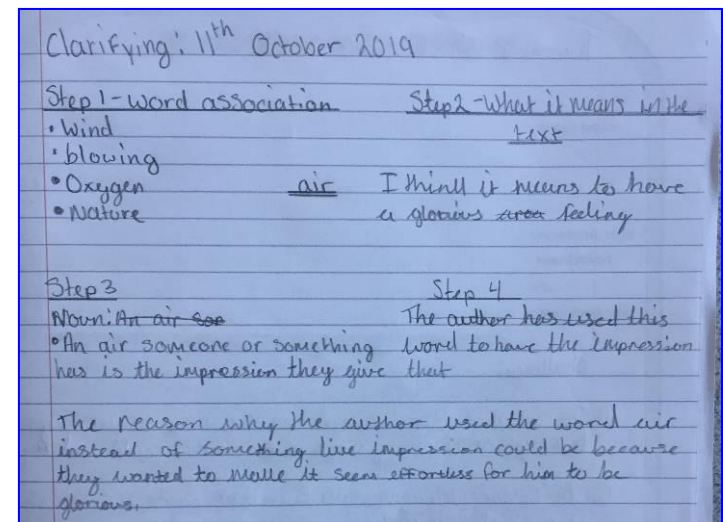 Clarifying: 11th October 2019
Step 1 - Word association
• Wind
• blowing
• Oxygen
• Nature
air
Step 2 - What it means in the
text
I think it means to have
a glorious area feeling
Step 3
Noun: An air soe
• An air someone or something
has is the impression they give
Step 4
The author has used this
word to have the impression
that
The reason why the author used the word air
instead of something like impression could be because
they wanted to make it seem effortless for him to be
glorious.